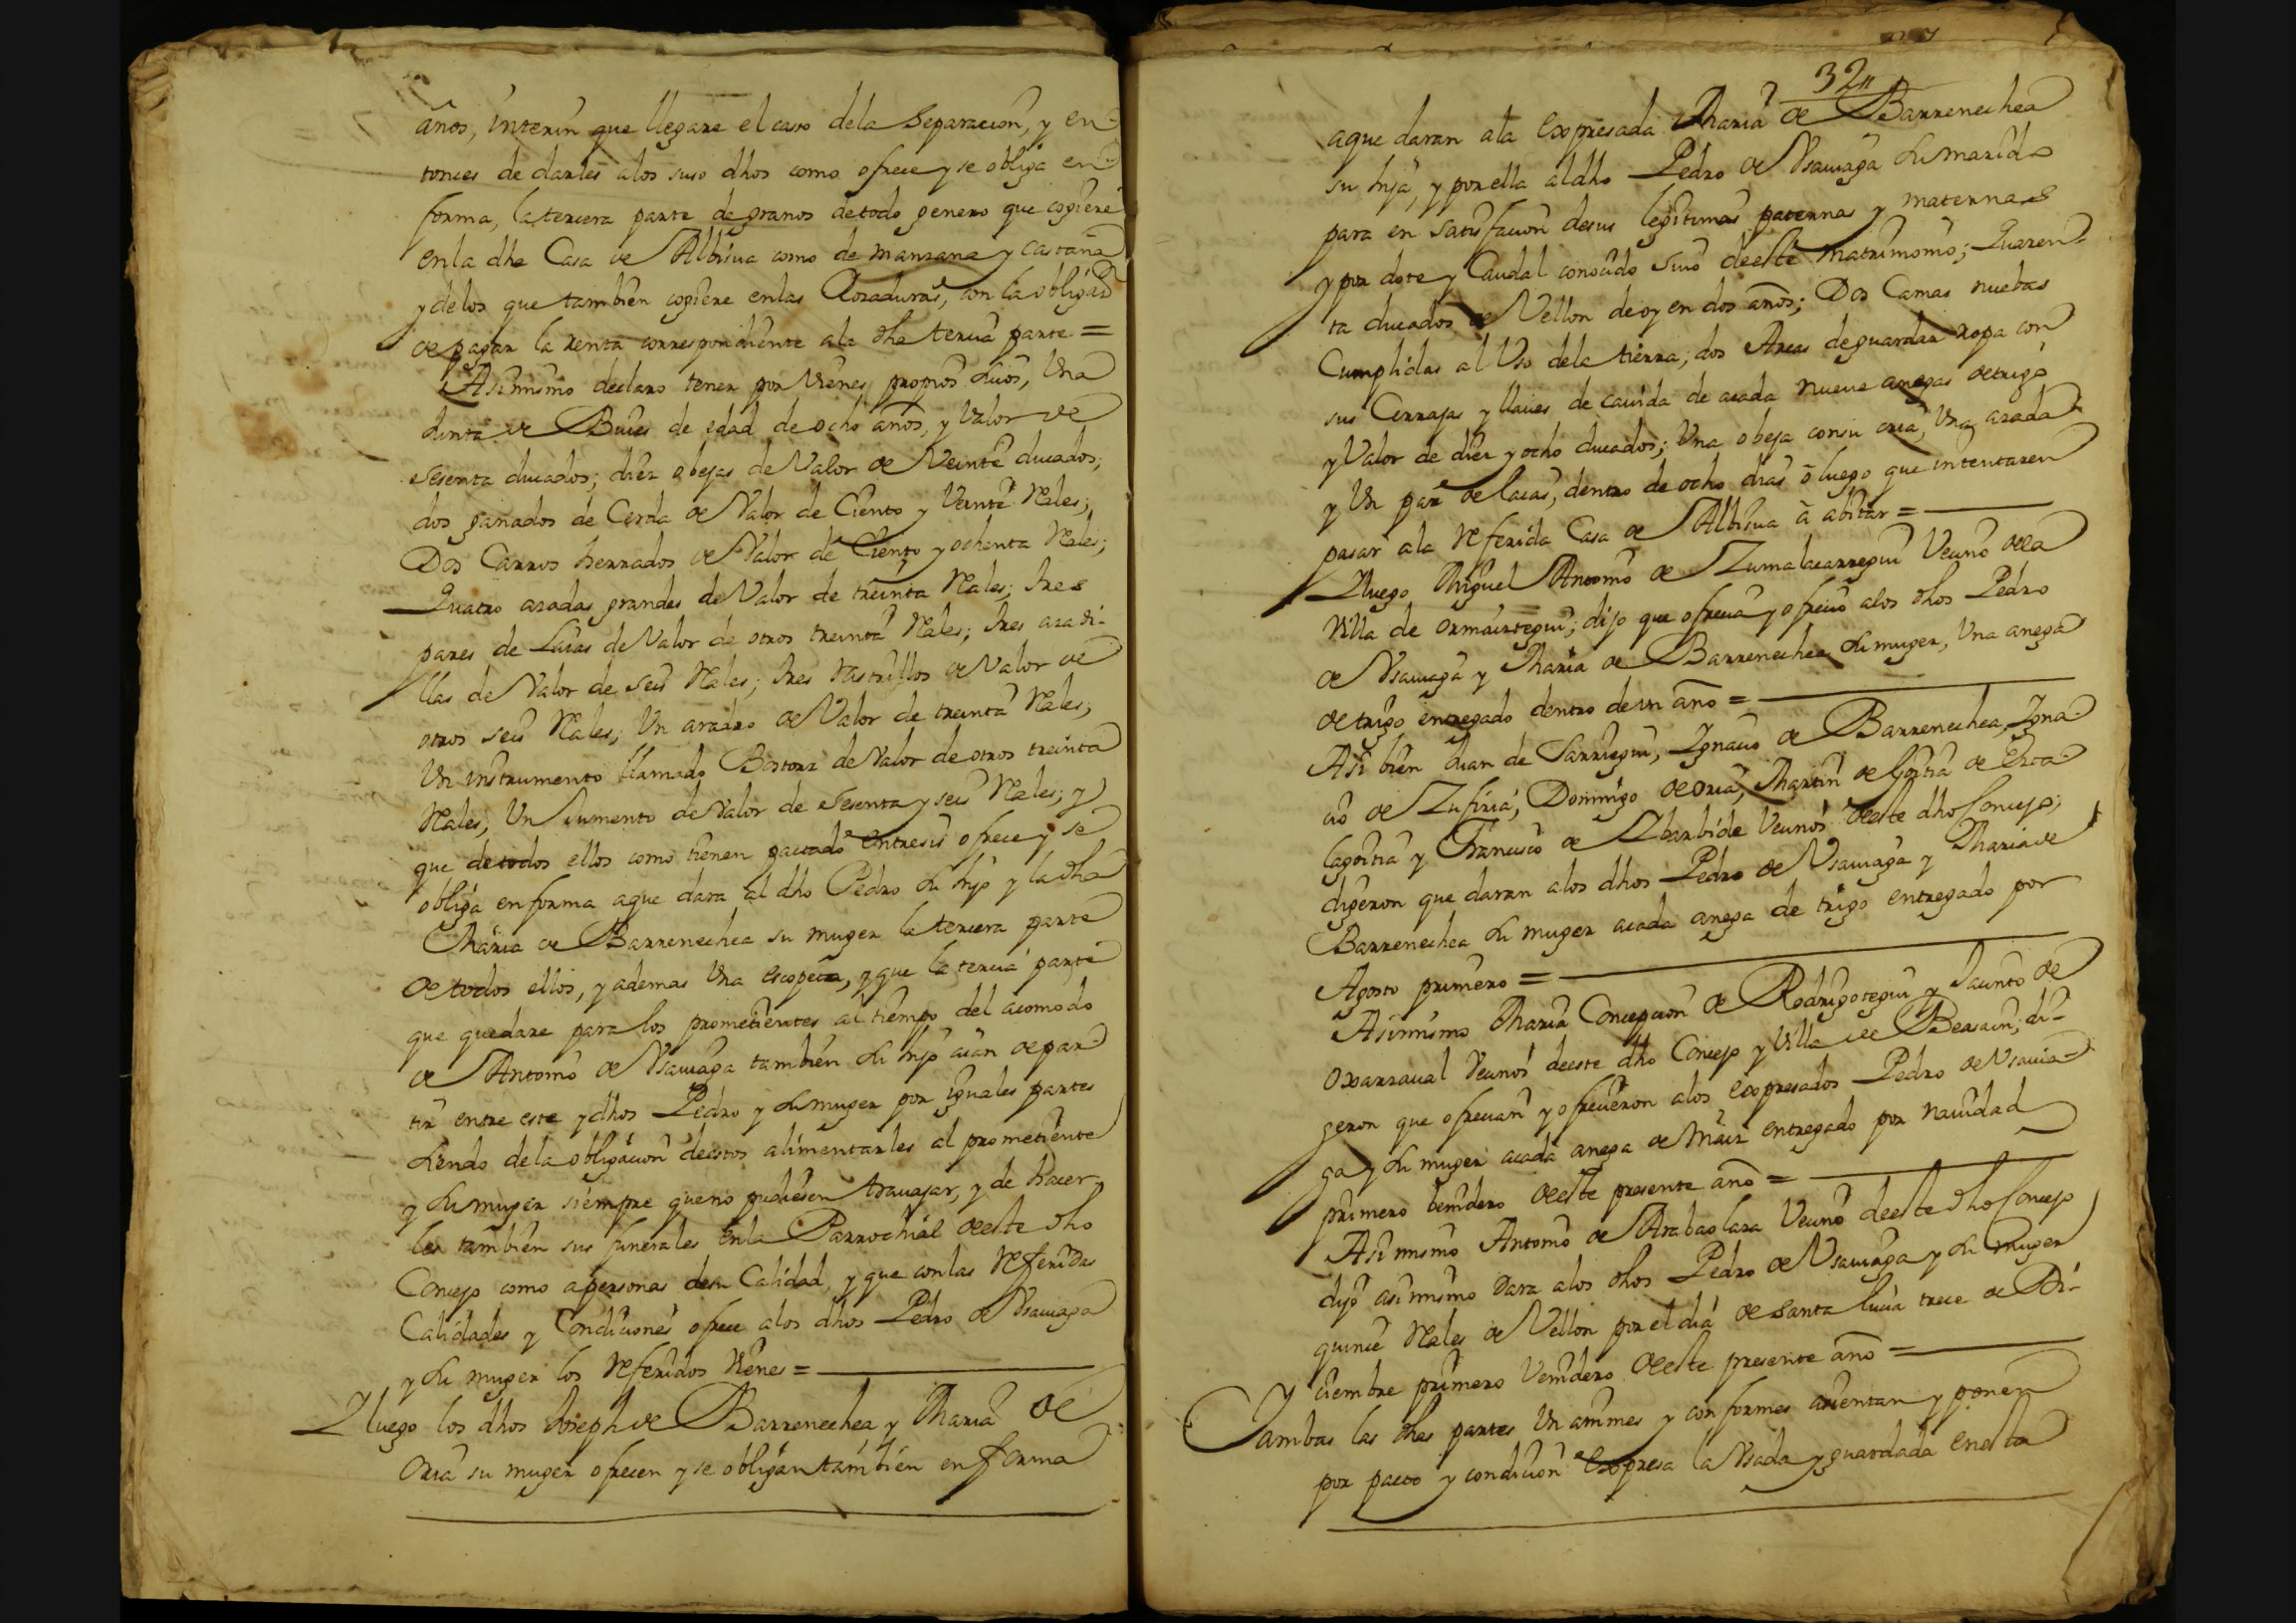 años, interin que llegare el caso dela Separacion, y en-
tonces de darles alos suso dhos como ofrece y se obliga en
forma, la tercera parte de granos de todo genero que cogiere
en la dha Casa de Albisua como de manzana y castaña
y de los que tambien cogiere en las Rozaduras, con la obligaⁿ
de pagar la renta correspondiente ala dha tercia parte =
Asimismo declaro tener por Vienes propios suios, Una
Iunta de Buies de edad de ocho años, y Valor de
sesenta ducados; diez obejas de Valor de Veinte ducados;
dos ganados de Cerda de Valor de Ciento y Veinte Rales;
Dos Carros herrados de Valor de Ciento y ochenta Rales;
Quatro azadas grandes de Valor de treinta Rales; tres
pares de Laias de Valor de otros treinta Rales; tres azadi-
llas de Valor de seis Rales; tres Rastrillos de Valor de
otros seis Rales; Un aradro de Valor de treinta Rales;
Un instrumento llamado Bostorz de Valor de otros treinta
Rales; Un Iumento de Valor de sesenta y seis Rales; y
que de todos ellos como tienen pactado entresis ofrece y se
obliga en forma a que dara al dho Pedro su hijo y la dha
Maria de Barrenechea su muger la tercera parte
de todos ellos, y ademas Una escopeta, y que la tercia parte
que quedare para los prometientes al tiempo del acomodo
de Antonio de Vsauiaga tambien su hijo aian de par-
tir entre este y dhos Pedro y su muger por iguales partes
siendo dela obligacion deestos alimentarles al prometiente
y su muger siempre que no pudiesen trauajar, y de hacer
les tambien sus funerales en la Parrochial deeste dho
Concejo como a personas desu Calidad, y que con las referidas
Calidades y Condiciones ofrece alos dhos Pedro de Vsauiaga
y su muger los referidos Vienes =
Y luego los dhos Joseph de Barrenechea y Maria de
Oria su muger ofrecen y se obligan tambien en forma
32
a que daran ala expresada Maria de Barrenechea
su hija, y por ella al dho Pedro de Vsauiaga su marido
para en satisfacion desus legitimas paternas y maternas
y por dote y Caudal conocido suio deeste matrimonio; Quaren-
ta ducados de Vellon de oy en dos años; Dos Camas nuebas
Cumplidas al Vso dela tierra; dos Arcas de guardar ropa con
sus Cerrajas y llaues de cauida de acada nueue anegas de trigo
y Valor de diez y ocho ducados; Una obeja con su cria, Una azada
y Un par de laias, dentro de ocho dias o luego que intentaren
pasar ala referida Casa de Albisua à abitar =
Y luego Miguel Antonio de Zumalacarregui Vecino dela
Villa de Ormaiztegui; dijo que ofrecia y ofrecio alos dhos Pedro
de Vsauiaga y Maria de Barrenechea su muger, Una anega
de trigo entregado dentro de un año =
Asi bien Juan de Sarriegui, Ignacio de Barrenechea, Igna-
cio de Zufiria, Domingo de Oria, Martin de Goitia de Erca-
lagoitia y Francisco de Ybarbide Vecinos deeste dho Concejo;
digeron que daran alos dhos Pedro de Vsauiaga y Maria de
Barrenechea su muger acada anega de trigo entregado por
Agosto primero =
Asimismo Maria Concepcion de Rodrigotegui y Jacinto de
Oxarraual Vecinos deeste dho Concejo y Villa de Beasain; di-
geron que ofrecian y ofrecieron alos expresados Pedro de Vsauia-
ga y su muger acada anega de Maiz entregado por nauidad
primero benidero deeste presente año =
Asimismo Antonio de Arabaolaza Vecino deeste dho Concejo
dijo asimismo dara alos dhos Pedro de Vsauiaga y su muger
quince Rales de Vellon por el dia de Santa Lucia trece de Di-
ciembre primero Venidero deeste presente año =
Y ambas las dhas partes Unanimes y conformes asientan y ponen
por pacto y condicion expresa la Vsada y guardada en esta